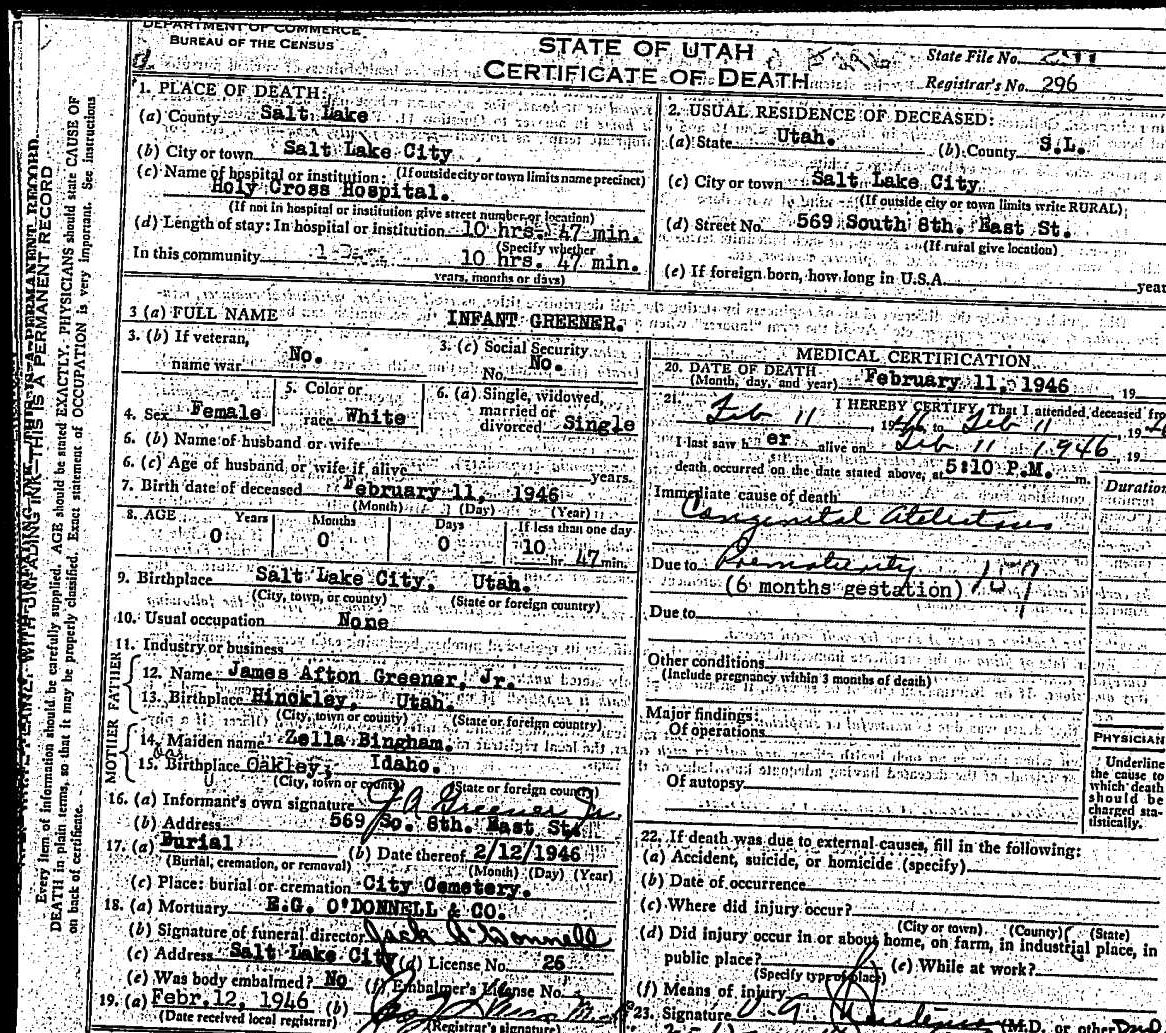 DEPARTMENT OF COMMERCE
BUREAU OF THE CENSUS
STATE OF UTAH
CERTIFICATE OF DEATH
State File No.
Registrar's No. 296
1. PLACE OF DEATH:
(a) County Salt Lake
(b) City or town Salt Lake City
(c) Name of hospital or institution: (If outside city or town limits name precinct)
Holy Cross Hospital.
(If not in hospital or institution give street number or location)
(d) Length of stay: In hospital or institution 10 hrs. 47 min.
(Specify whether
In this community 10 hrs. 47 min.
years, months or days)
2. USUAL RESIDENCE OF DECEASED:
(a) State Utah. (b) County S.L.
(c) City or town Salt Lake City
(If outside city or town limits write RURAL)
(d) Street No. 569 South 8th. East St.
(If rural give location)
(e) If foreign born, how long in U.S.A. year
3 (a) FULL NAME INFANT GREENER.
3. (b) If veteran,
name war No.
3. (c) Social Security
No. No.
4. Sex Female
5. Color or
race White
6. (a) Single, widowed,
married or
divorced Single
6. (b) Name of husband or wife
6. (c) Age of husband or wife if alive years.
7. Birth date of deceased February 11, 1946
(Month) (Day) (Year)
8. AGE Years Months Days If less than one day
0 0 0 10 hr. 47 min.
9. Birthplace Salt Lake City, Utah.
(City, town, or county) (State or foreign country)
10. Usual occupation None
11. Industry or business
FATHER
12. Name James Afton Greener, Jr.
13. Birthplace Hinckley, Utah.
(City, town or county) (State or foreign country)
MOTHER
14. Maiden name Zella Bingham.
15. Birthplace Oakley, Idaho.
(City, town or county) (State or foreign country)
16. (a) Informant's own signature J A Greener Jr.
(b) Address 569 So. 8th. East St.
17. (a) Burial (b) Date thereof 2/12/1946
(Burial, cremation, or removal) (Month) (Day) (Year)
(c) Place: burial or cremation City Cemetery.
18. (a) Mortuary E.G. O'DONNELL & CO.
(b) Signature of funeral director Jack O'Donnell
(c) Address Salt Lake City (d) License No. 26
(e) Was body embalmed? No (f) Embalmer's License No.
19. (a) Febr. 12, 1946 (b)
(Date received local registrar) (Registrar's signature)
MEDICAL CERTIFICATION
20. DATE OF DEATH
(Month, day, and year) February 11, 1946, 19
21. I HEREBY CERTIFY, That I attended deceased fro
Feb 11 1946 to Feb 11, 1946
I last saw h er alive on Feb 11 1946, 19
death occurred on the date stated above, at 5:10 P.M. m.
Immediate cause of death Duration
Congenital Atelectasis
Due to Prematurity 159
(6 months gestation)
Due to
Other conditions
(Include pregnancy within 3 months of death)
Major findings:
Of operations
Of autopsy
PHYSICIAN
Underline
the cause to
which death
should be
charged sta-
tistically.
22. If death was due to external causes, fill in the following:
(a) Accident, suicide, or homicide (specify)
(b) Date of occurrence
(c) Where did injury occur?
(City or town) (County) (State)
(d) Did injury occur in or about home, on farm, in industrial place, in
public place? (e) While at work?
(Specify type of place)
(f) Means of injury
23. Signature (M.D. or other
THIS IS A PERMANENT RECORD
Every item of information should be carefully supplied. AGE should be stated EXACTLY. PHYSICIANS should state CAUSE OF
DEATH in plain terms, so that it may be properly classified. Exact statement of OCCUPATION is very important. See instructions
on back of certificate.